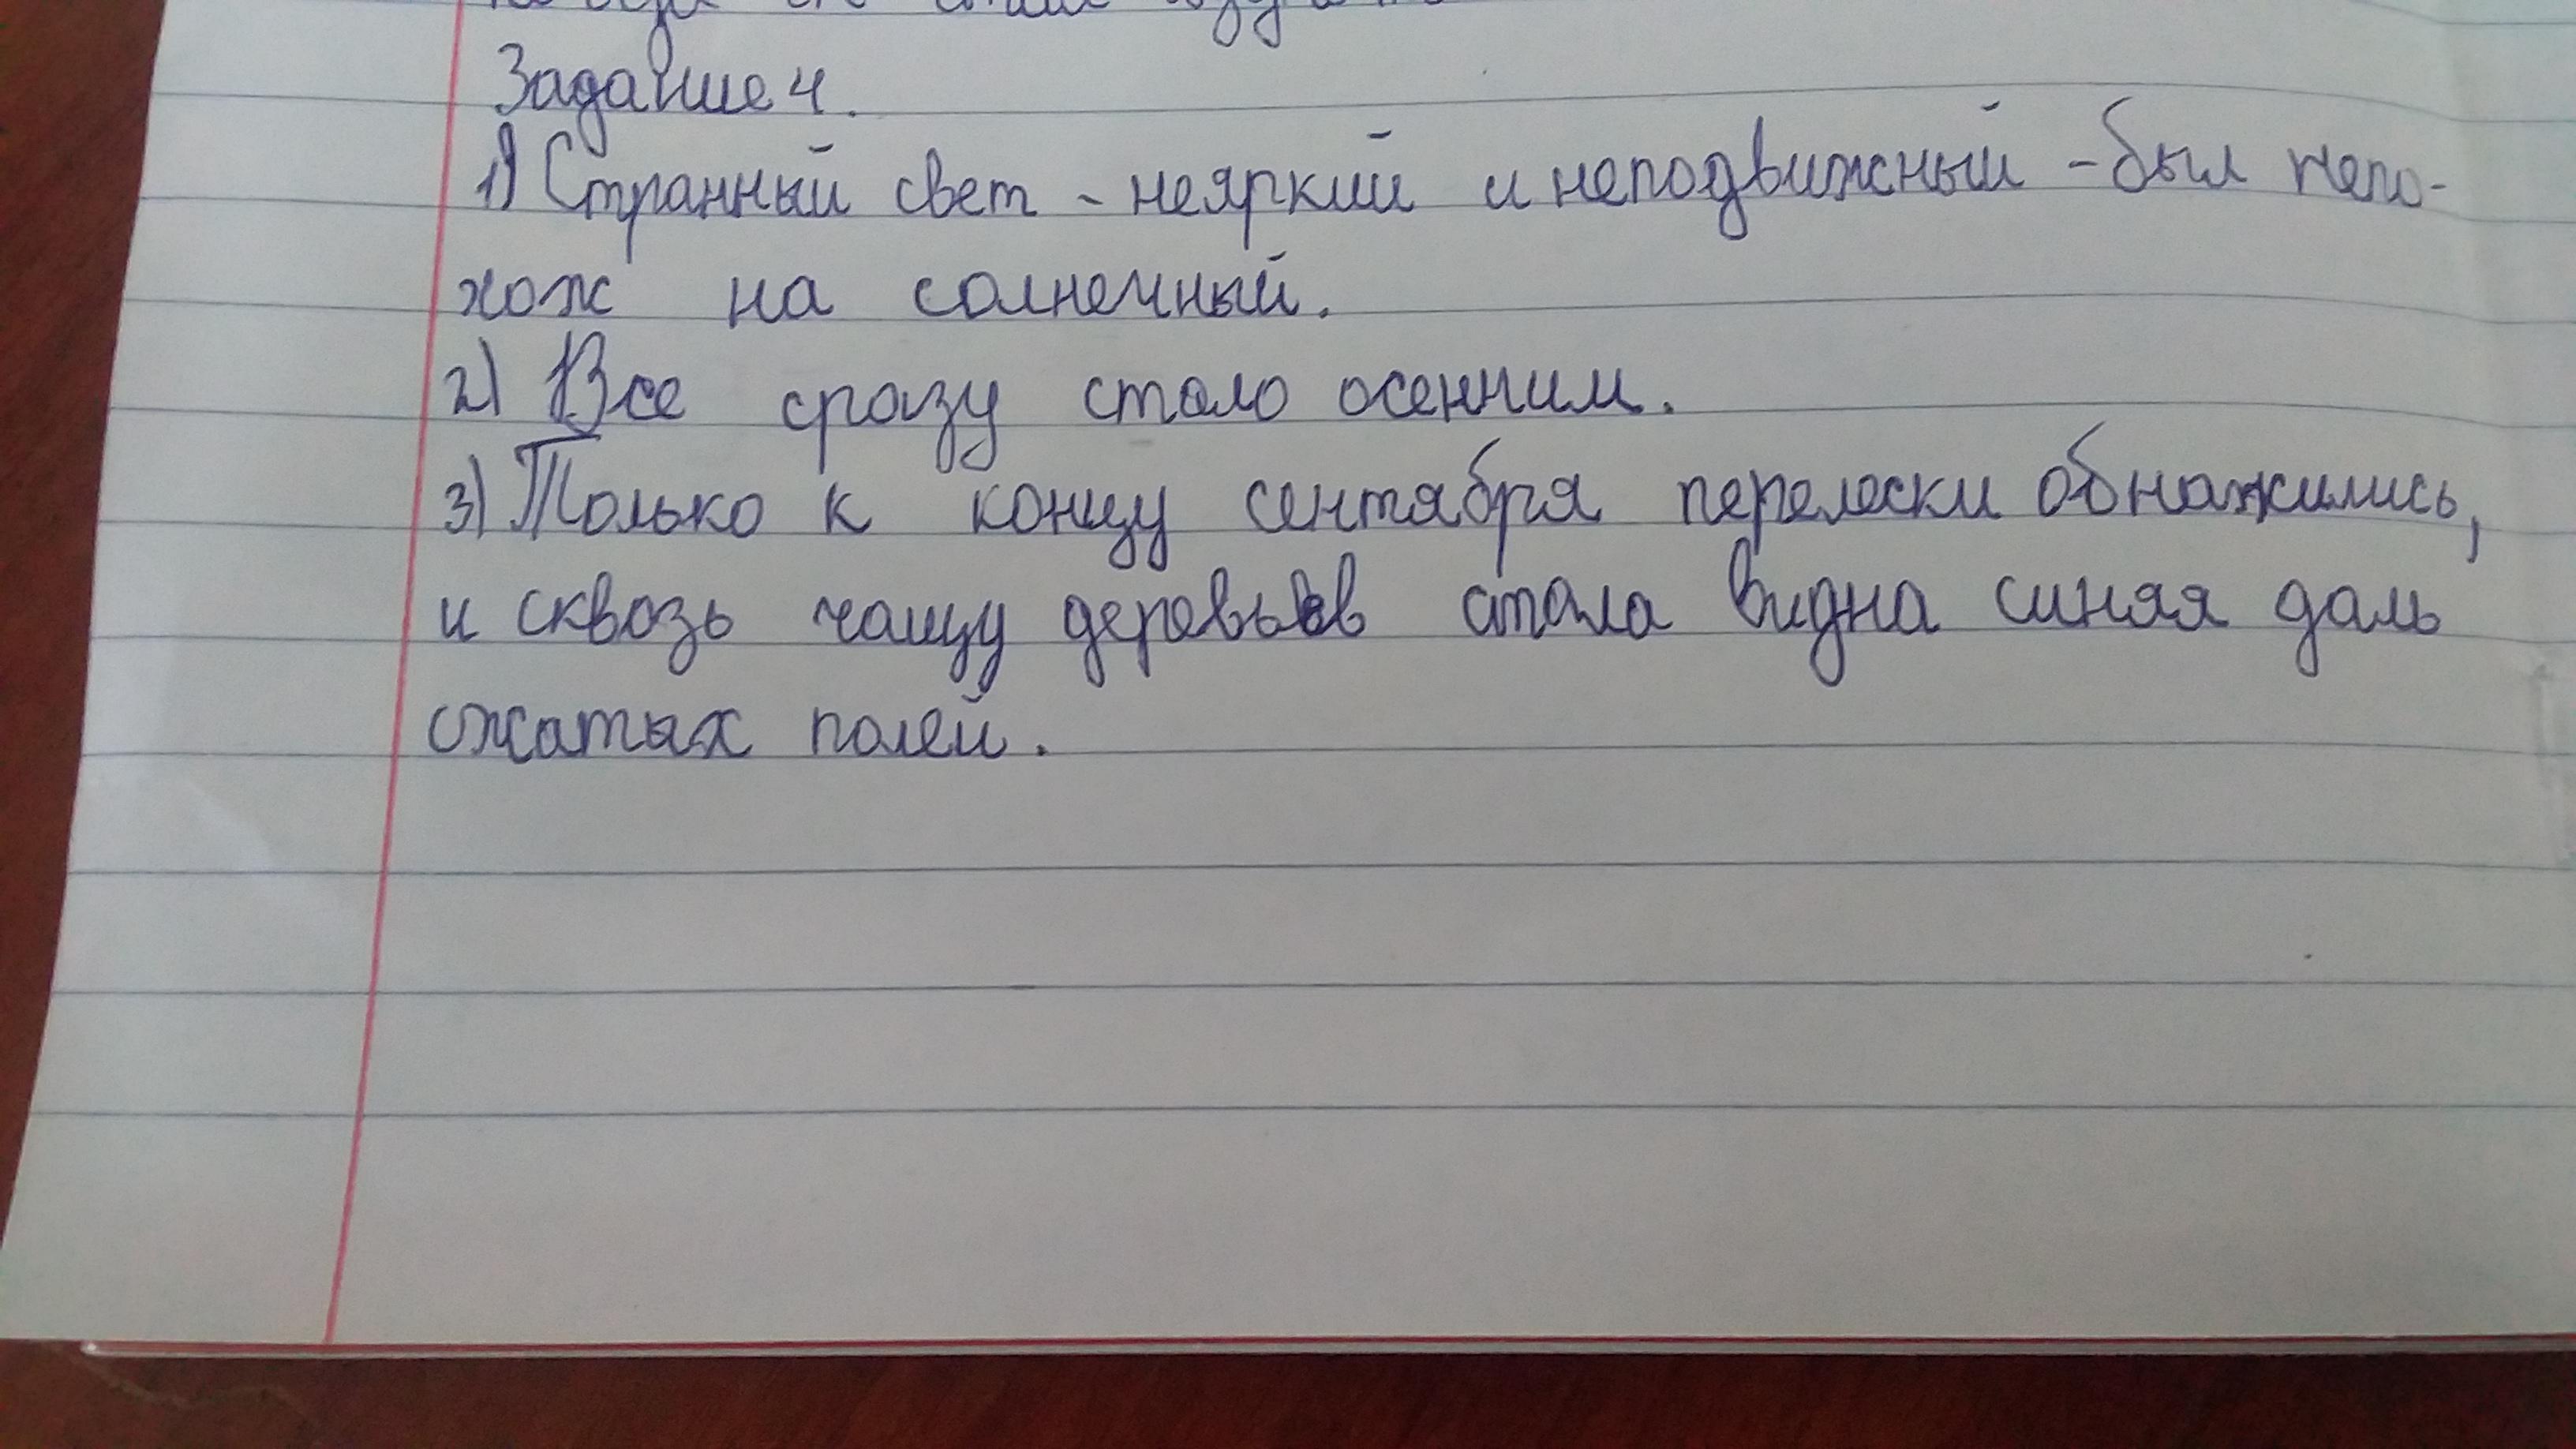 Задание 4.
1) Странный свет - неяркий и неподвижный - был непо-
хож на солнечный.
2) Все сразу стало осенним.
3) Только к концу сентября перелески обнажились,
и сквозь чащу деревьев стала видна синяя даль
сжатых полей.